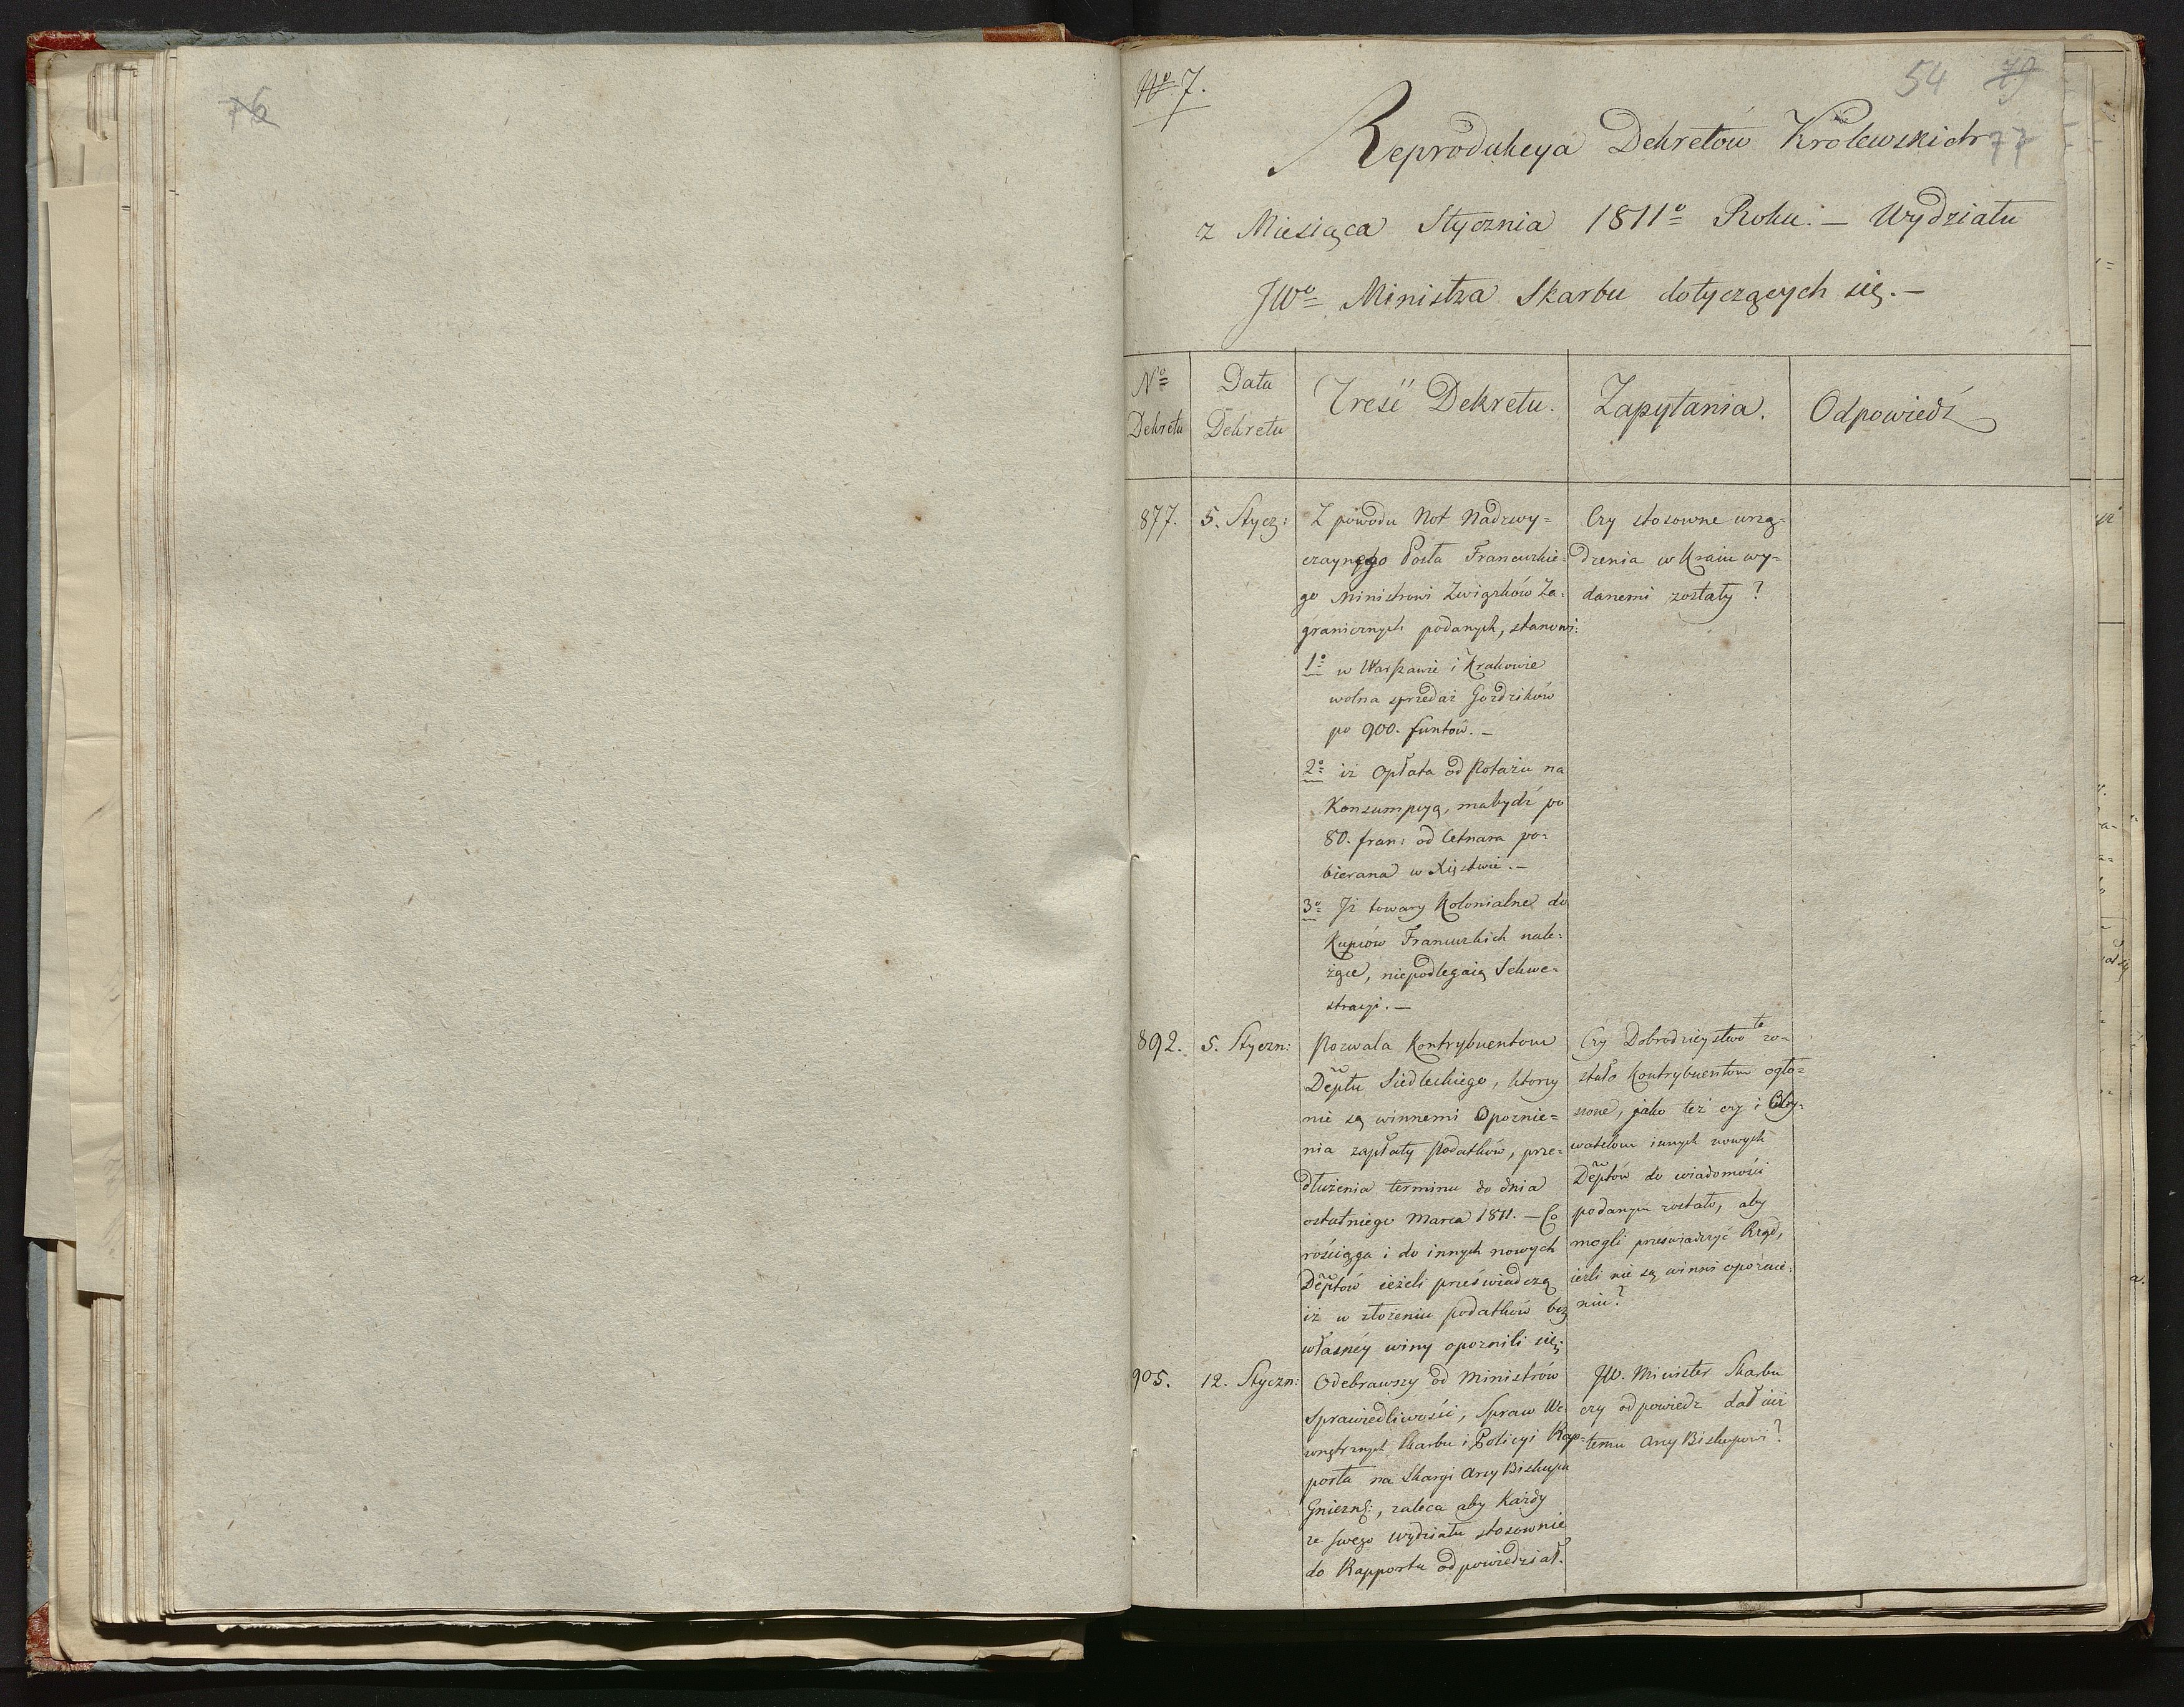 76
No 7.
54 79
77
Reprodukcya Dekretów Królewskich
z Miesiąca Stycznia 1811o Roku. – Wydziału
JWo Ministra Skarbu dotyczących się. –
No Dekretu
Data Dekretu
Treść Dekretu.
Zapytania.
Odpowiedź
877.
5. Stycz:
Z powodu Not Nadzwy=
czaynego Posła Francuzkie=
go Ministrowi Związków Za=
granicznych podanych, stanowi:
1o w Warszawie i Krakowie
wolna sprzedaż Gozdzików
po 900. funtów. –
2o iż Opłata od Potażu na
Konsumpcyą, mabydź po
80. fran: od Cetnara po=
bierana w Xięstwie. –
3o Jż towary Kolonialne do
Kupców Francuzkich nale=
żące, niepodlegaią Sekwe=
stracyi. –
Czy stosowne urzą=
dzenia w Kraiu wy=
danemi zostały?
892.
5. Styczn:
Pozwala Kontrybuentom
Deptu Siedleckiego, którzy
nie są winnemi Opoznie=
nia zapłaty Podatków, prze=
dłużenia terminu do dnia
ostatniego Marca 1811. – Co
rościąga i do innych nowych
Deptów ieżeli przeświadczą
iż w złożeniu podatków bez
własnéy winy opoznili się.
Czy Dobrodzieystwo te zo=
stało Kontrybuentom ogło=
szone, jako też czy i Oby=
watelom innych nowych
Deptów do wiadomości
podanym zostało, aby
mogli przeświadczyć Rząd,
ieźli nie są winni opóźnie=
niu?
905.
12. Styczn:
Odebrawszy od Ministrów
Sprawiedliwości, Spraw We=
wnętrznych Skarbu i Policyi Rap=
porta na Skargi Arcy Biskupa
Gniezń:, zaleca aby Każdy
ze swego wydziału stosownie
do Rapportu odpowiedział.
JW. Minister Skarbu
czy odpowiedź dał iuż
temu Arcy Biskupowi?